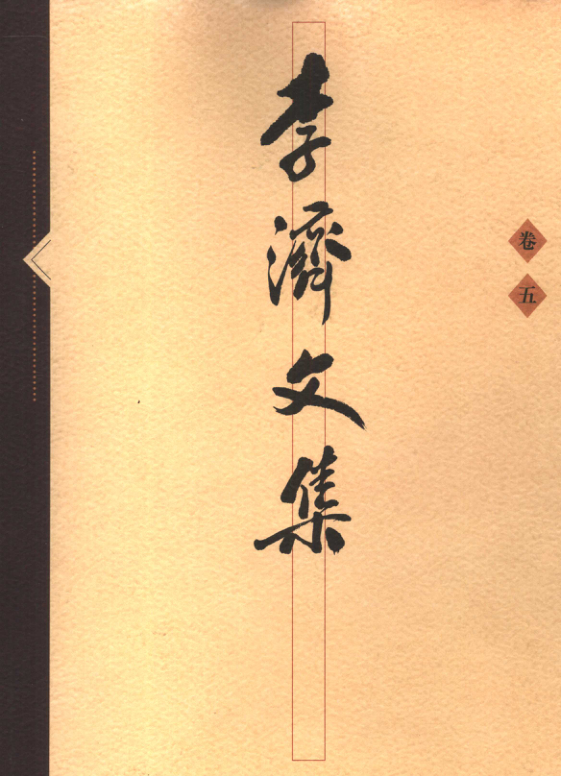 李濟文集
卷五